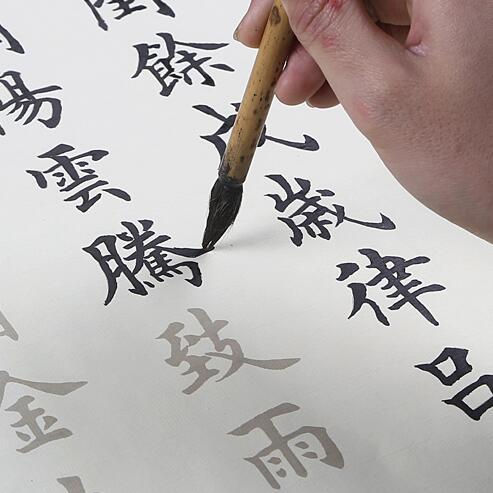 餘成歲律呂
陽雲騰致雨
金